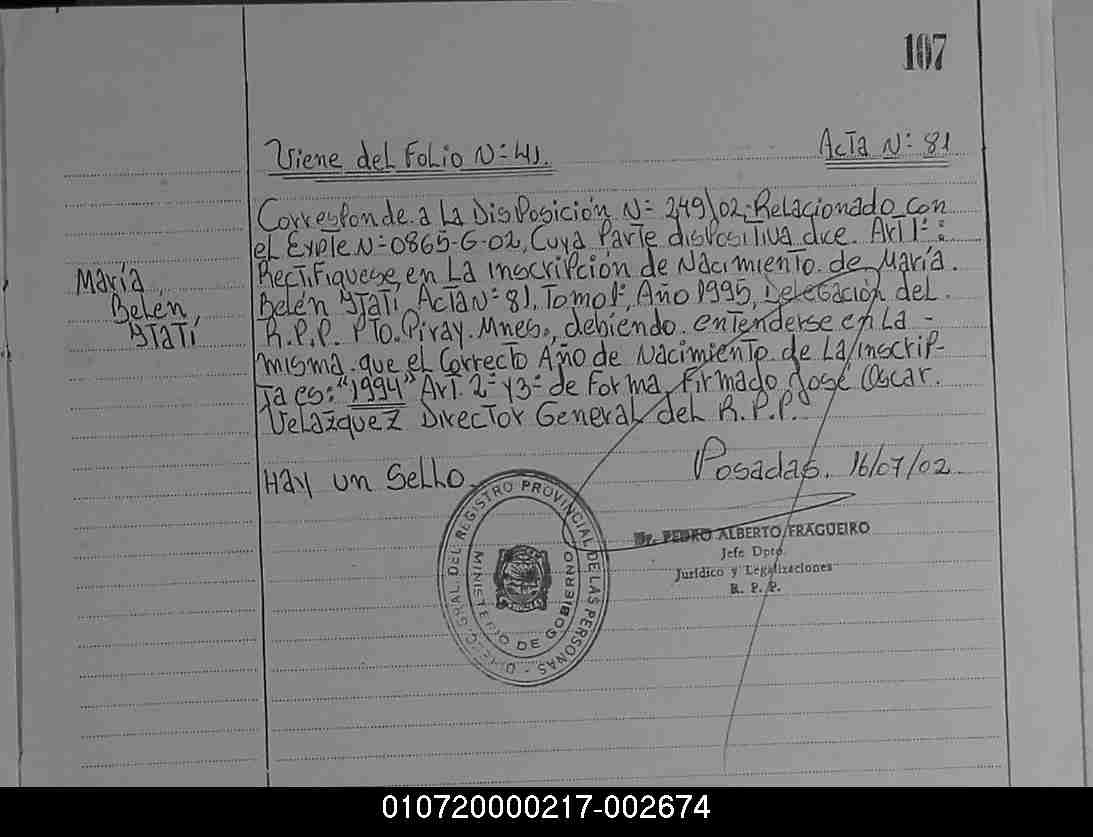 107
Viene del Folio N=41.
Acta N=81
Corresponde a La Disposición N= 249/02, Relacionado con
el Expte N=0865-G-02, Cuya Parte dispositiva dice. Art 1=:
María,
Rectifiquese, en La inscripción de Nacimiento. de María.
Belén,
Belén Itatí Acta N=81, Tomo 1=, Año 1995, Delegación del.
Itatí
R.P.P. Pto. Piray. Mnes., debiendo. entenderse en La -
misma. que el Correcto Año de Nacimiento. de La inscrip-
ta es: "1994" Art. 2= y 3= de Forma, Firmado José Oscar.
Velazquez Director General del R.P.P.
Hay un Sello.
Posadas. 16/07/02.
DIREC. GRAL. DEL REGISTRO PROVINCIAL DE LAS PERSONAS -
MINISTERIO DE GOBIERNO
Dr. PEDRO ALBERTO FRAGUEIRO
Jefe Dpto.
Jurídico y Legalizaciones
R. P. P.
010720000217-002674